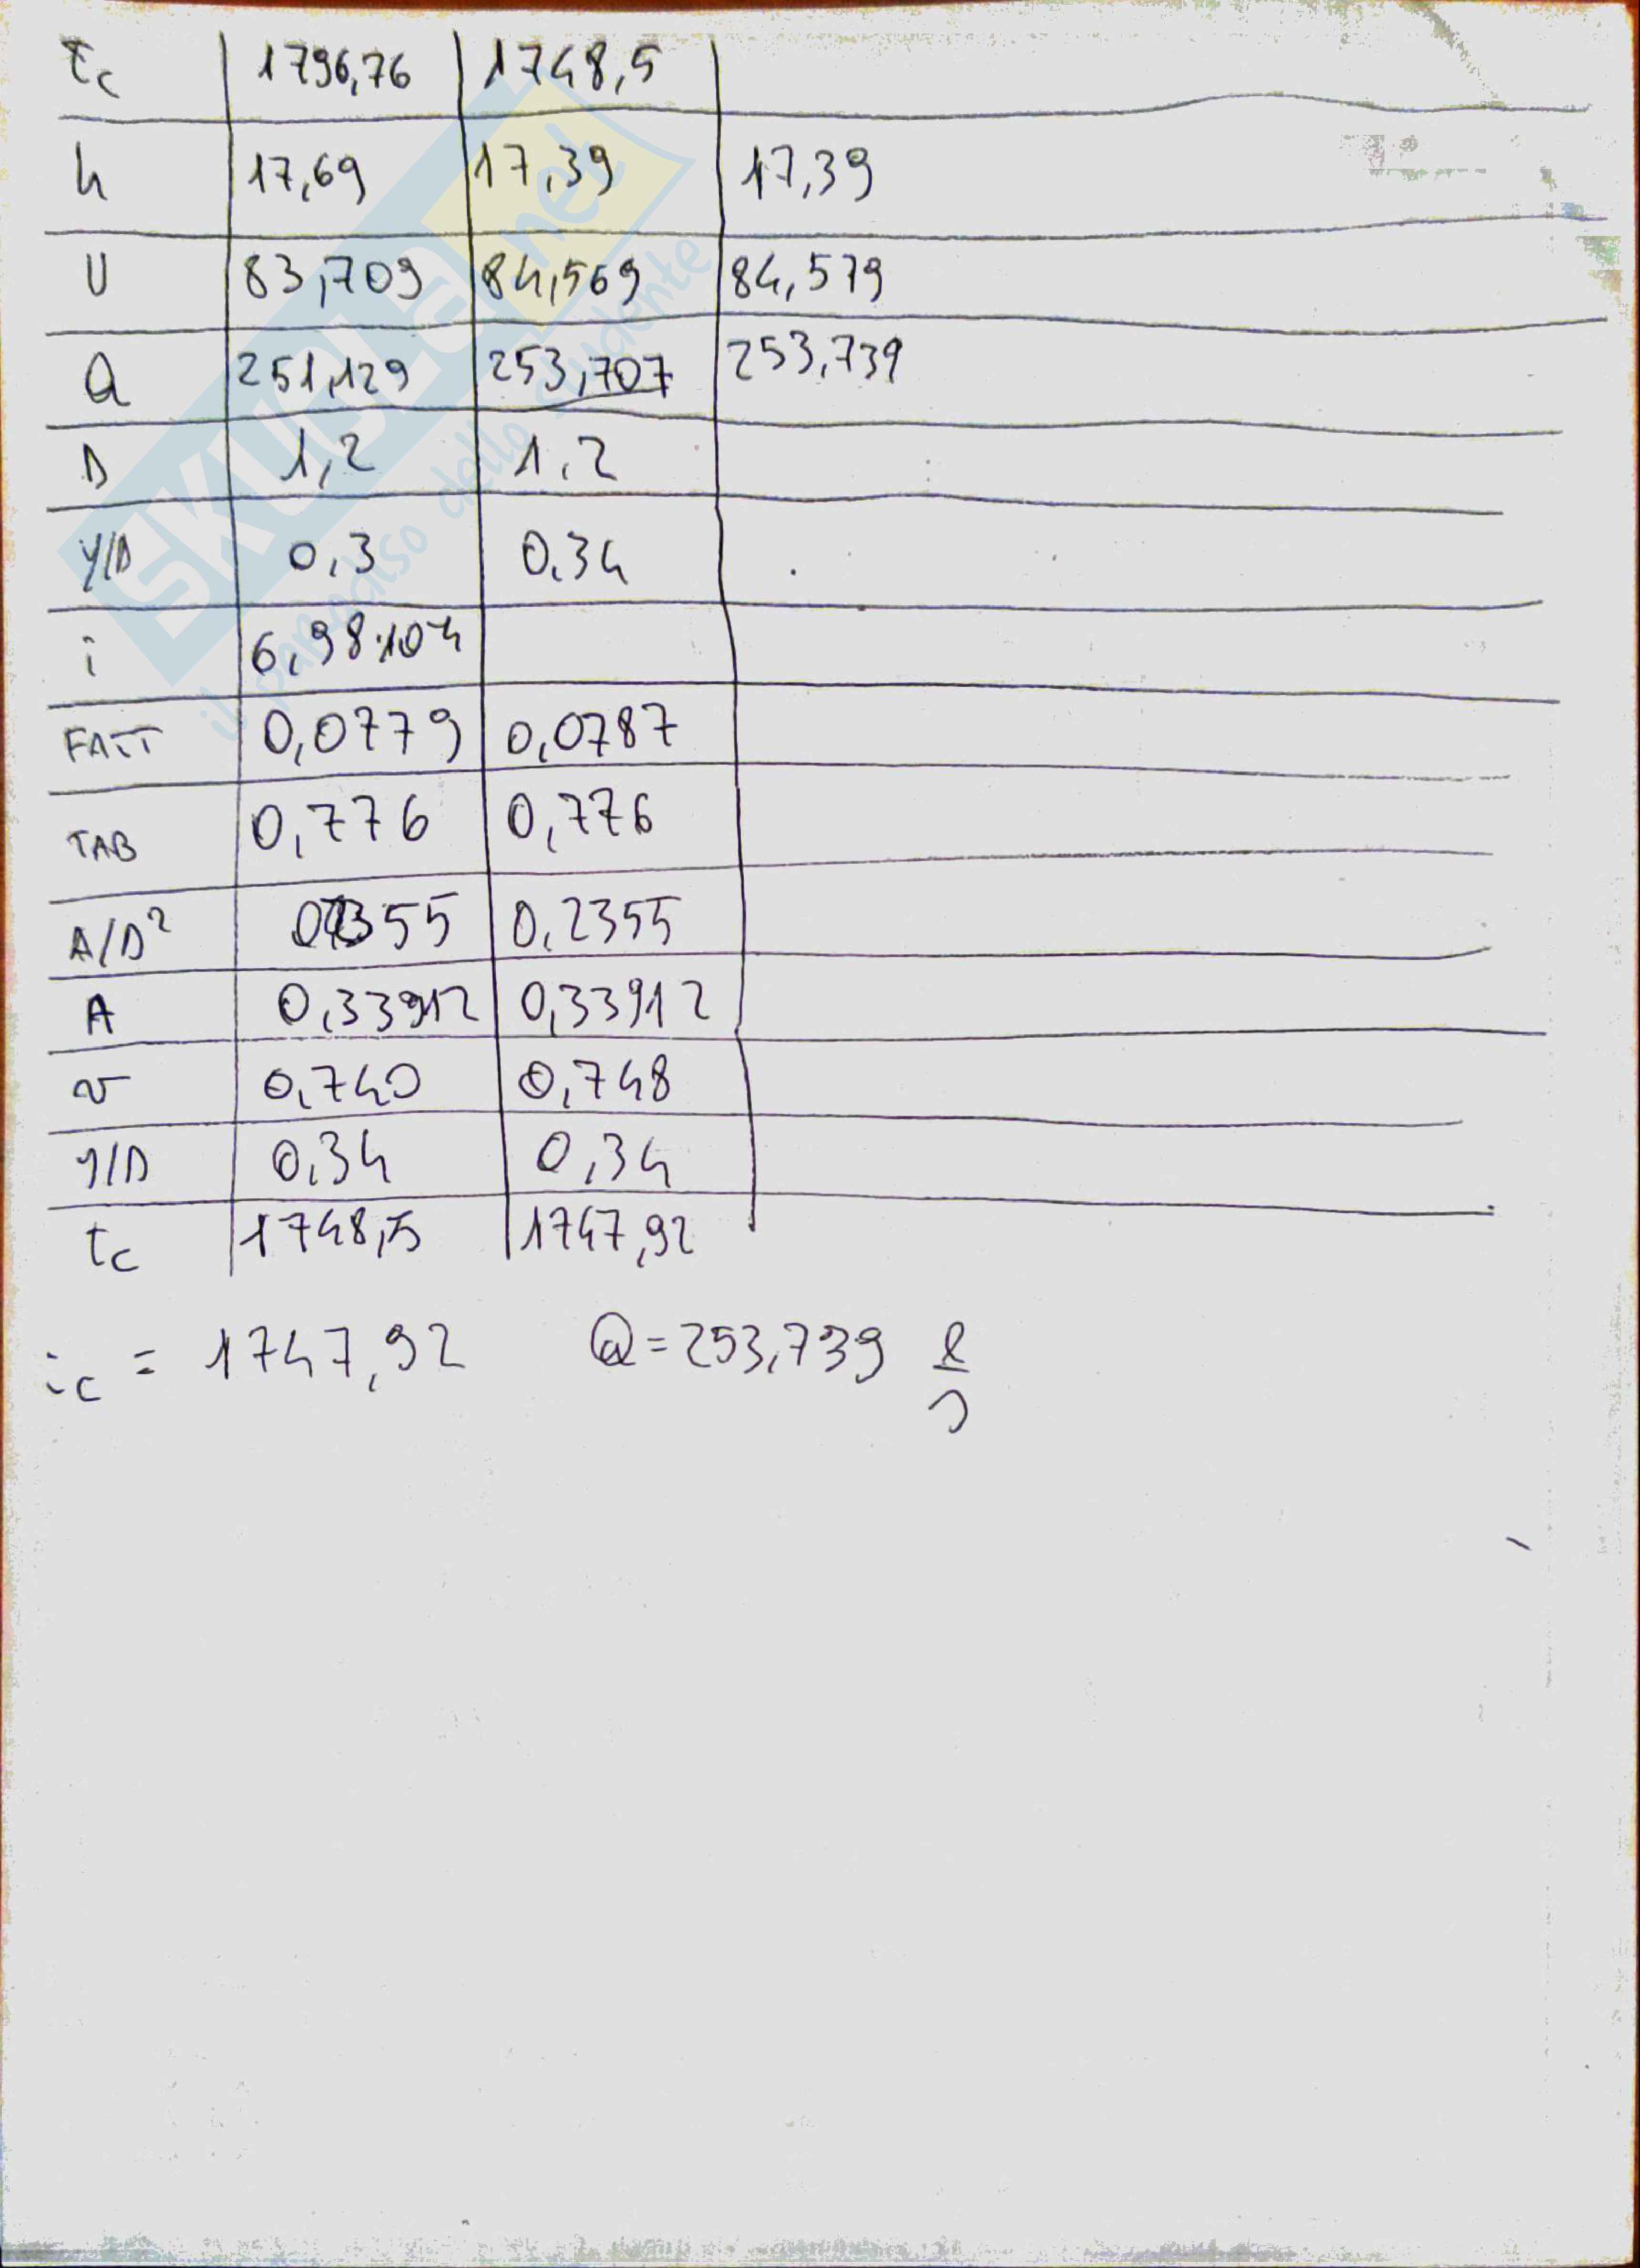 tc 1796,76 1748,5
h 17,69 17,39 17,39
U 83,709 84,569 84,579
Q 251,129 253,707 253,739
D 1,2 1,2
y/D 0,3 0,34
i 6,98·10-4
FATT 0,0779 0,0787
TAB 0,776 0,776
A/D² 0,2355 0,2355
A 0,33912 0,33912
v 0,740 0,748
y/D 0,34 0,34
tc 1748,5 1747,92
ic = 1747,92 Q=253,739 l/s
SKUOLA.net
il paradiso dello studente